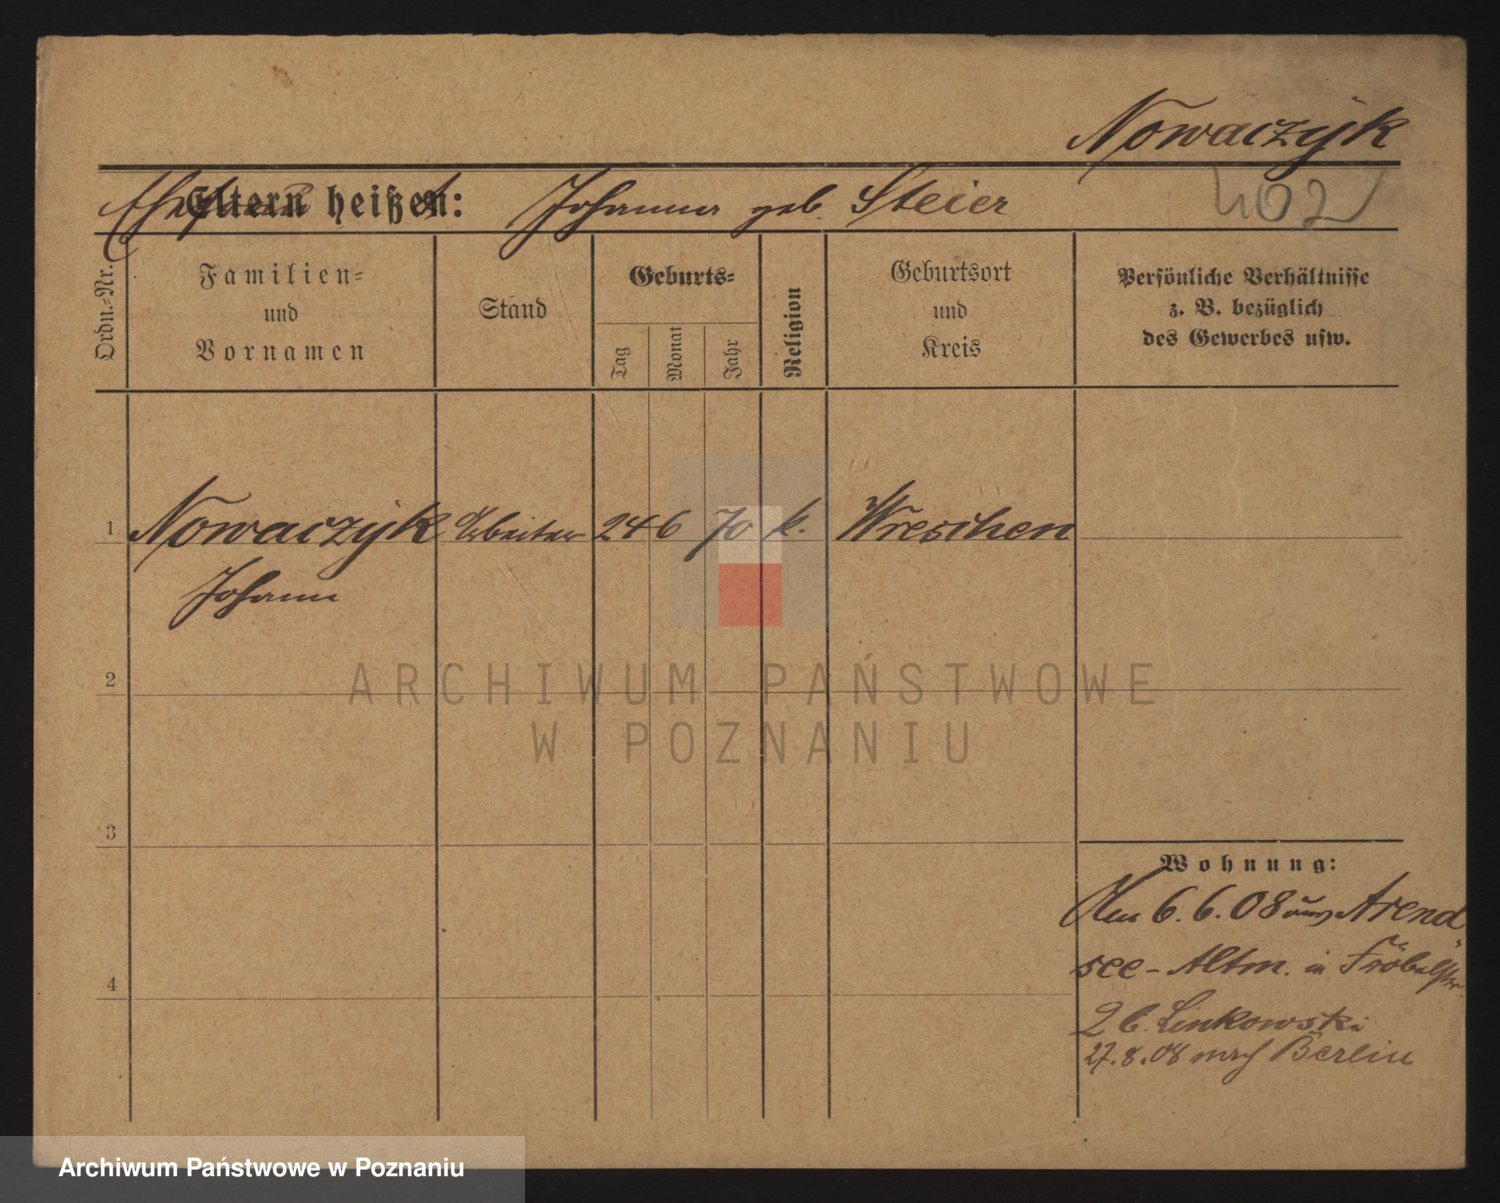 Nowaczyk
Ehefrau
Eltern heißen: Johanna geb. Steier
402
Ordn.-Nr.
Familien-
und
Vornamen
Stand
Geburts-
Tag
Monat
Jahr
Religion
Geburtsort
und
Kreis
Persönliche Verhältnisse
z. B. bezüglich
des Gewerbes usw.
1 Nowaczyk Arbeiter 24 6 70 k. Wreschen
Johann
2
3
4
ARCHIWUM PAŃSTWOWE
W POZNANIU
Wohnung:
Am 6.6.08 aus Arend
see - Altm. in Fröbelstr.
2 b. Linkowski
27.8.08 nach Berlin
Archiwum Państwowe w Poznaniu